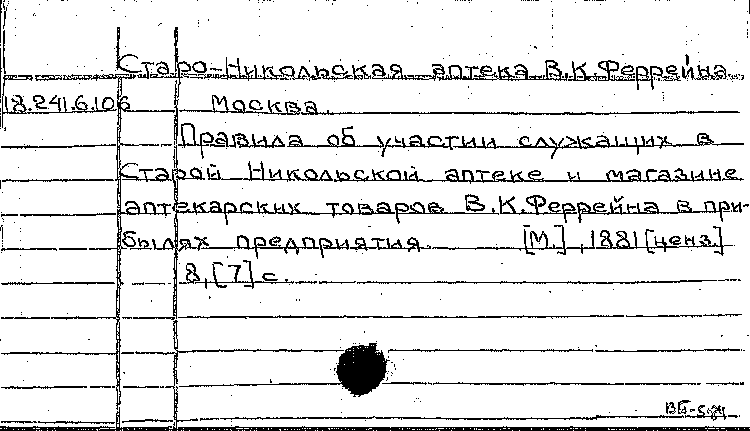 Старо-Никольская аптека В.К.Феррейна
18.241.6.106 Москва.
Правила об участии служащих в
Старой Никольской аптеке и магазине
аптекарских товаров В.К.Феррейна в при-
былях предприятия. [М.], 1881 [ценз.]
8, [7] с.